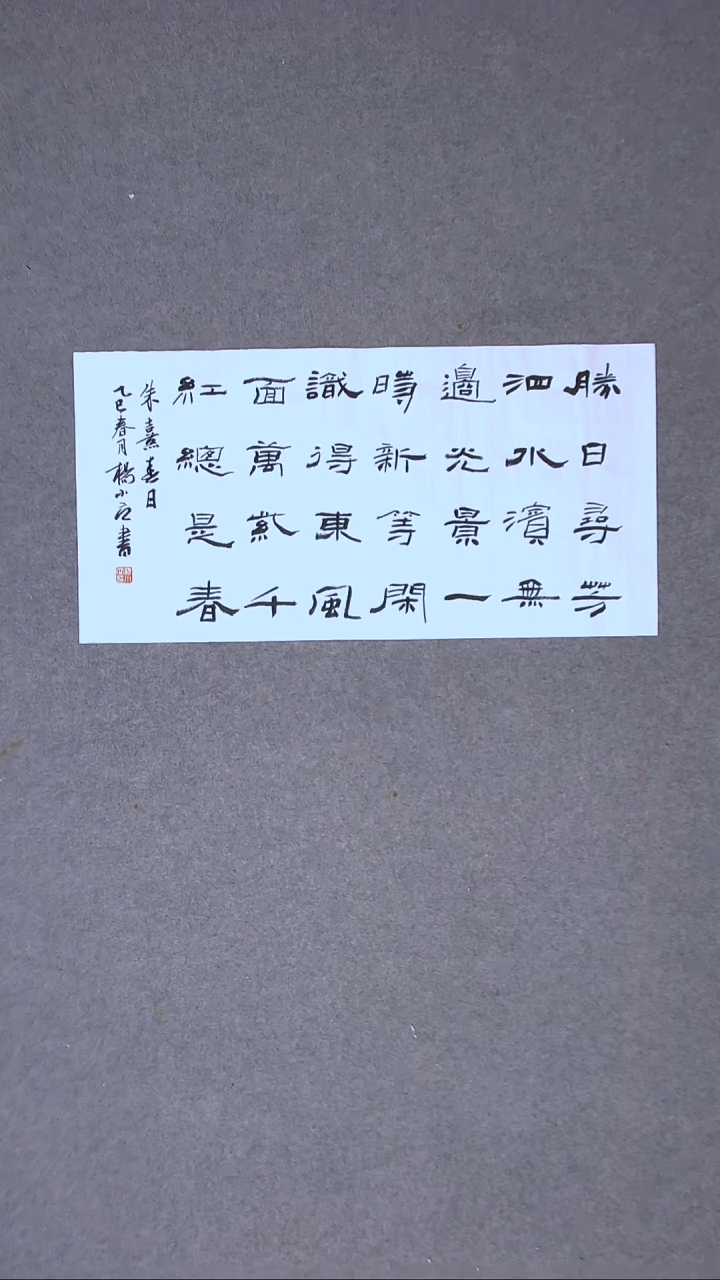 勝日尋芳
泗水濱無
邊光景一
時新等閑
識得東風
面萬紫千
紅總是春
朱熹春日
乙巳春月楊小書